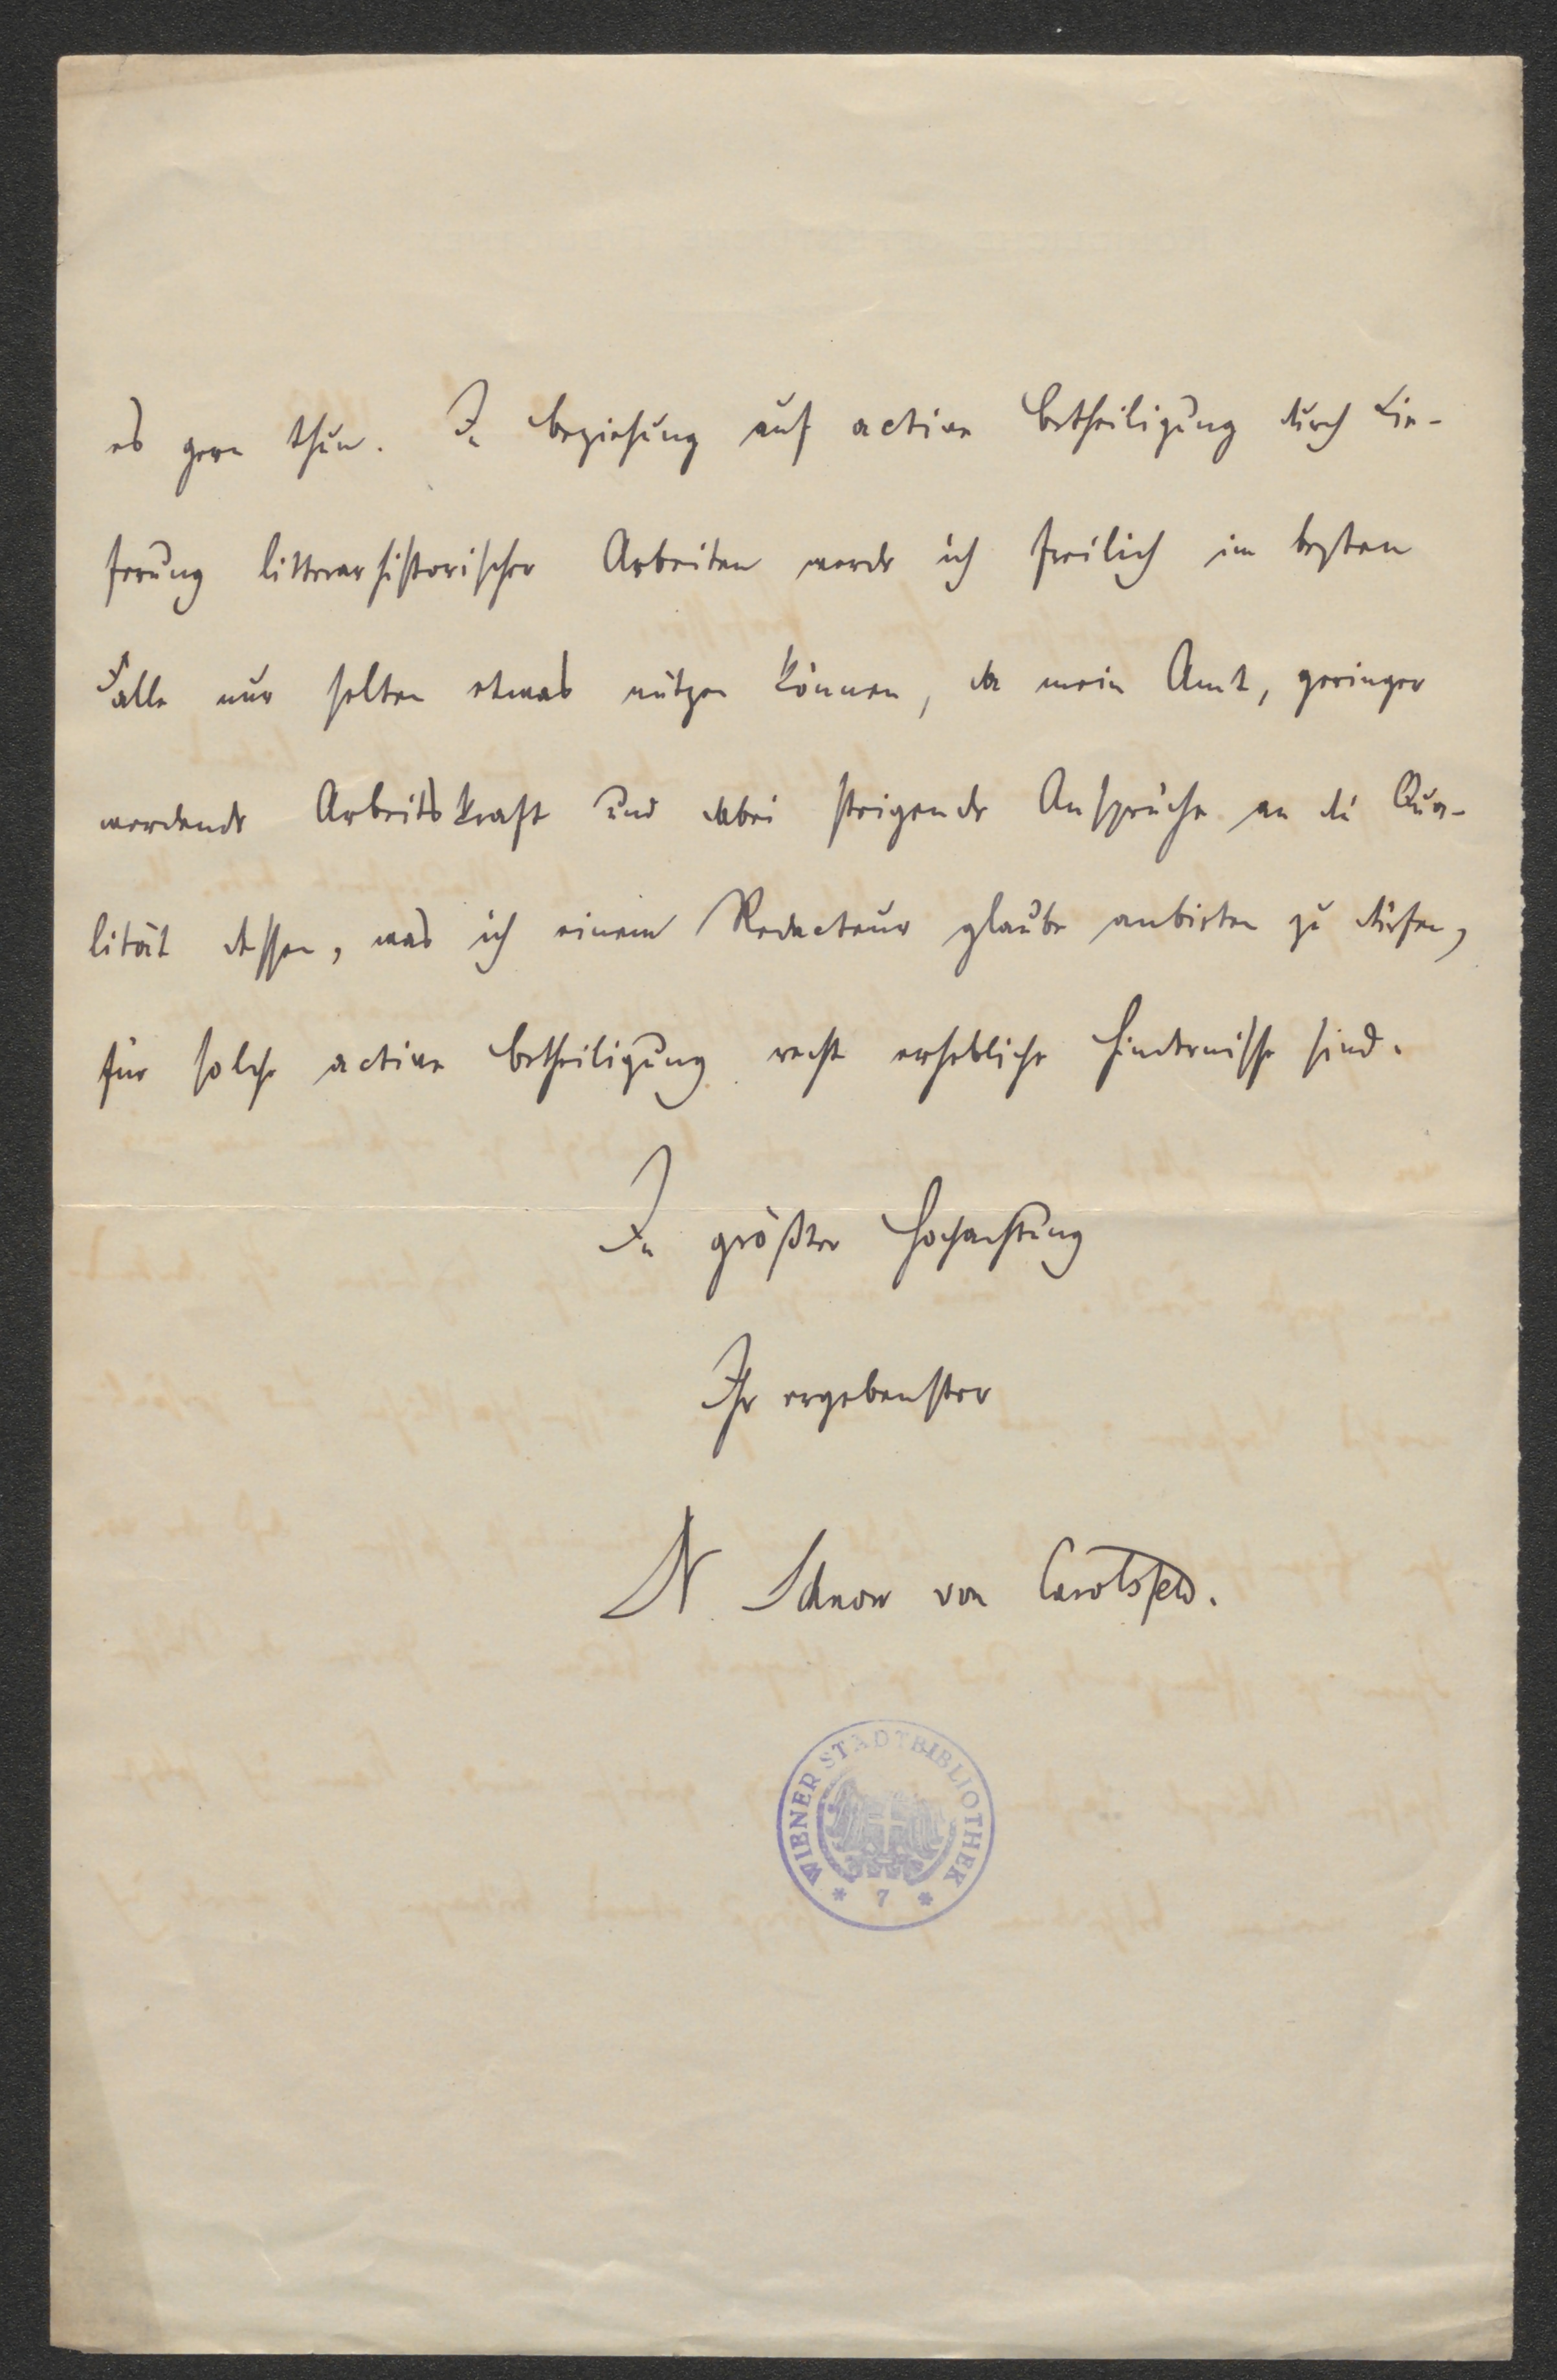 es gern thun. In Beziehung auf active Betheiligung durch Lie-
ferung litterarhistorischer Arbeiten werde ich freilich im besten
Falle nur selten etwas nützen können, da mein Amt, geringer
werdende Arbeitskraft und dabei steigende Ansprüche an die Qua-
lität dessen, was ich einem Redacteur glaube anbieten zu dürfen,
für solche active Betheiligung recht erhebliche Hindernisse sind.
In größter Hochachtung
Ihr ergebenster
Schnorr von Carolsfeld.
WIENER STADTBIBLIOTHEK
* 7 *